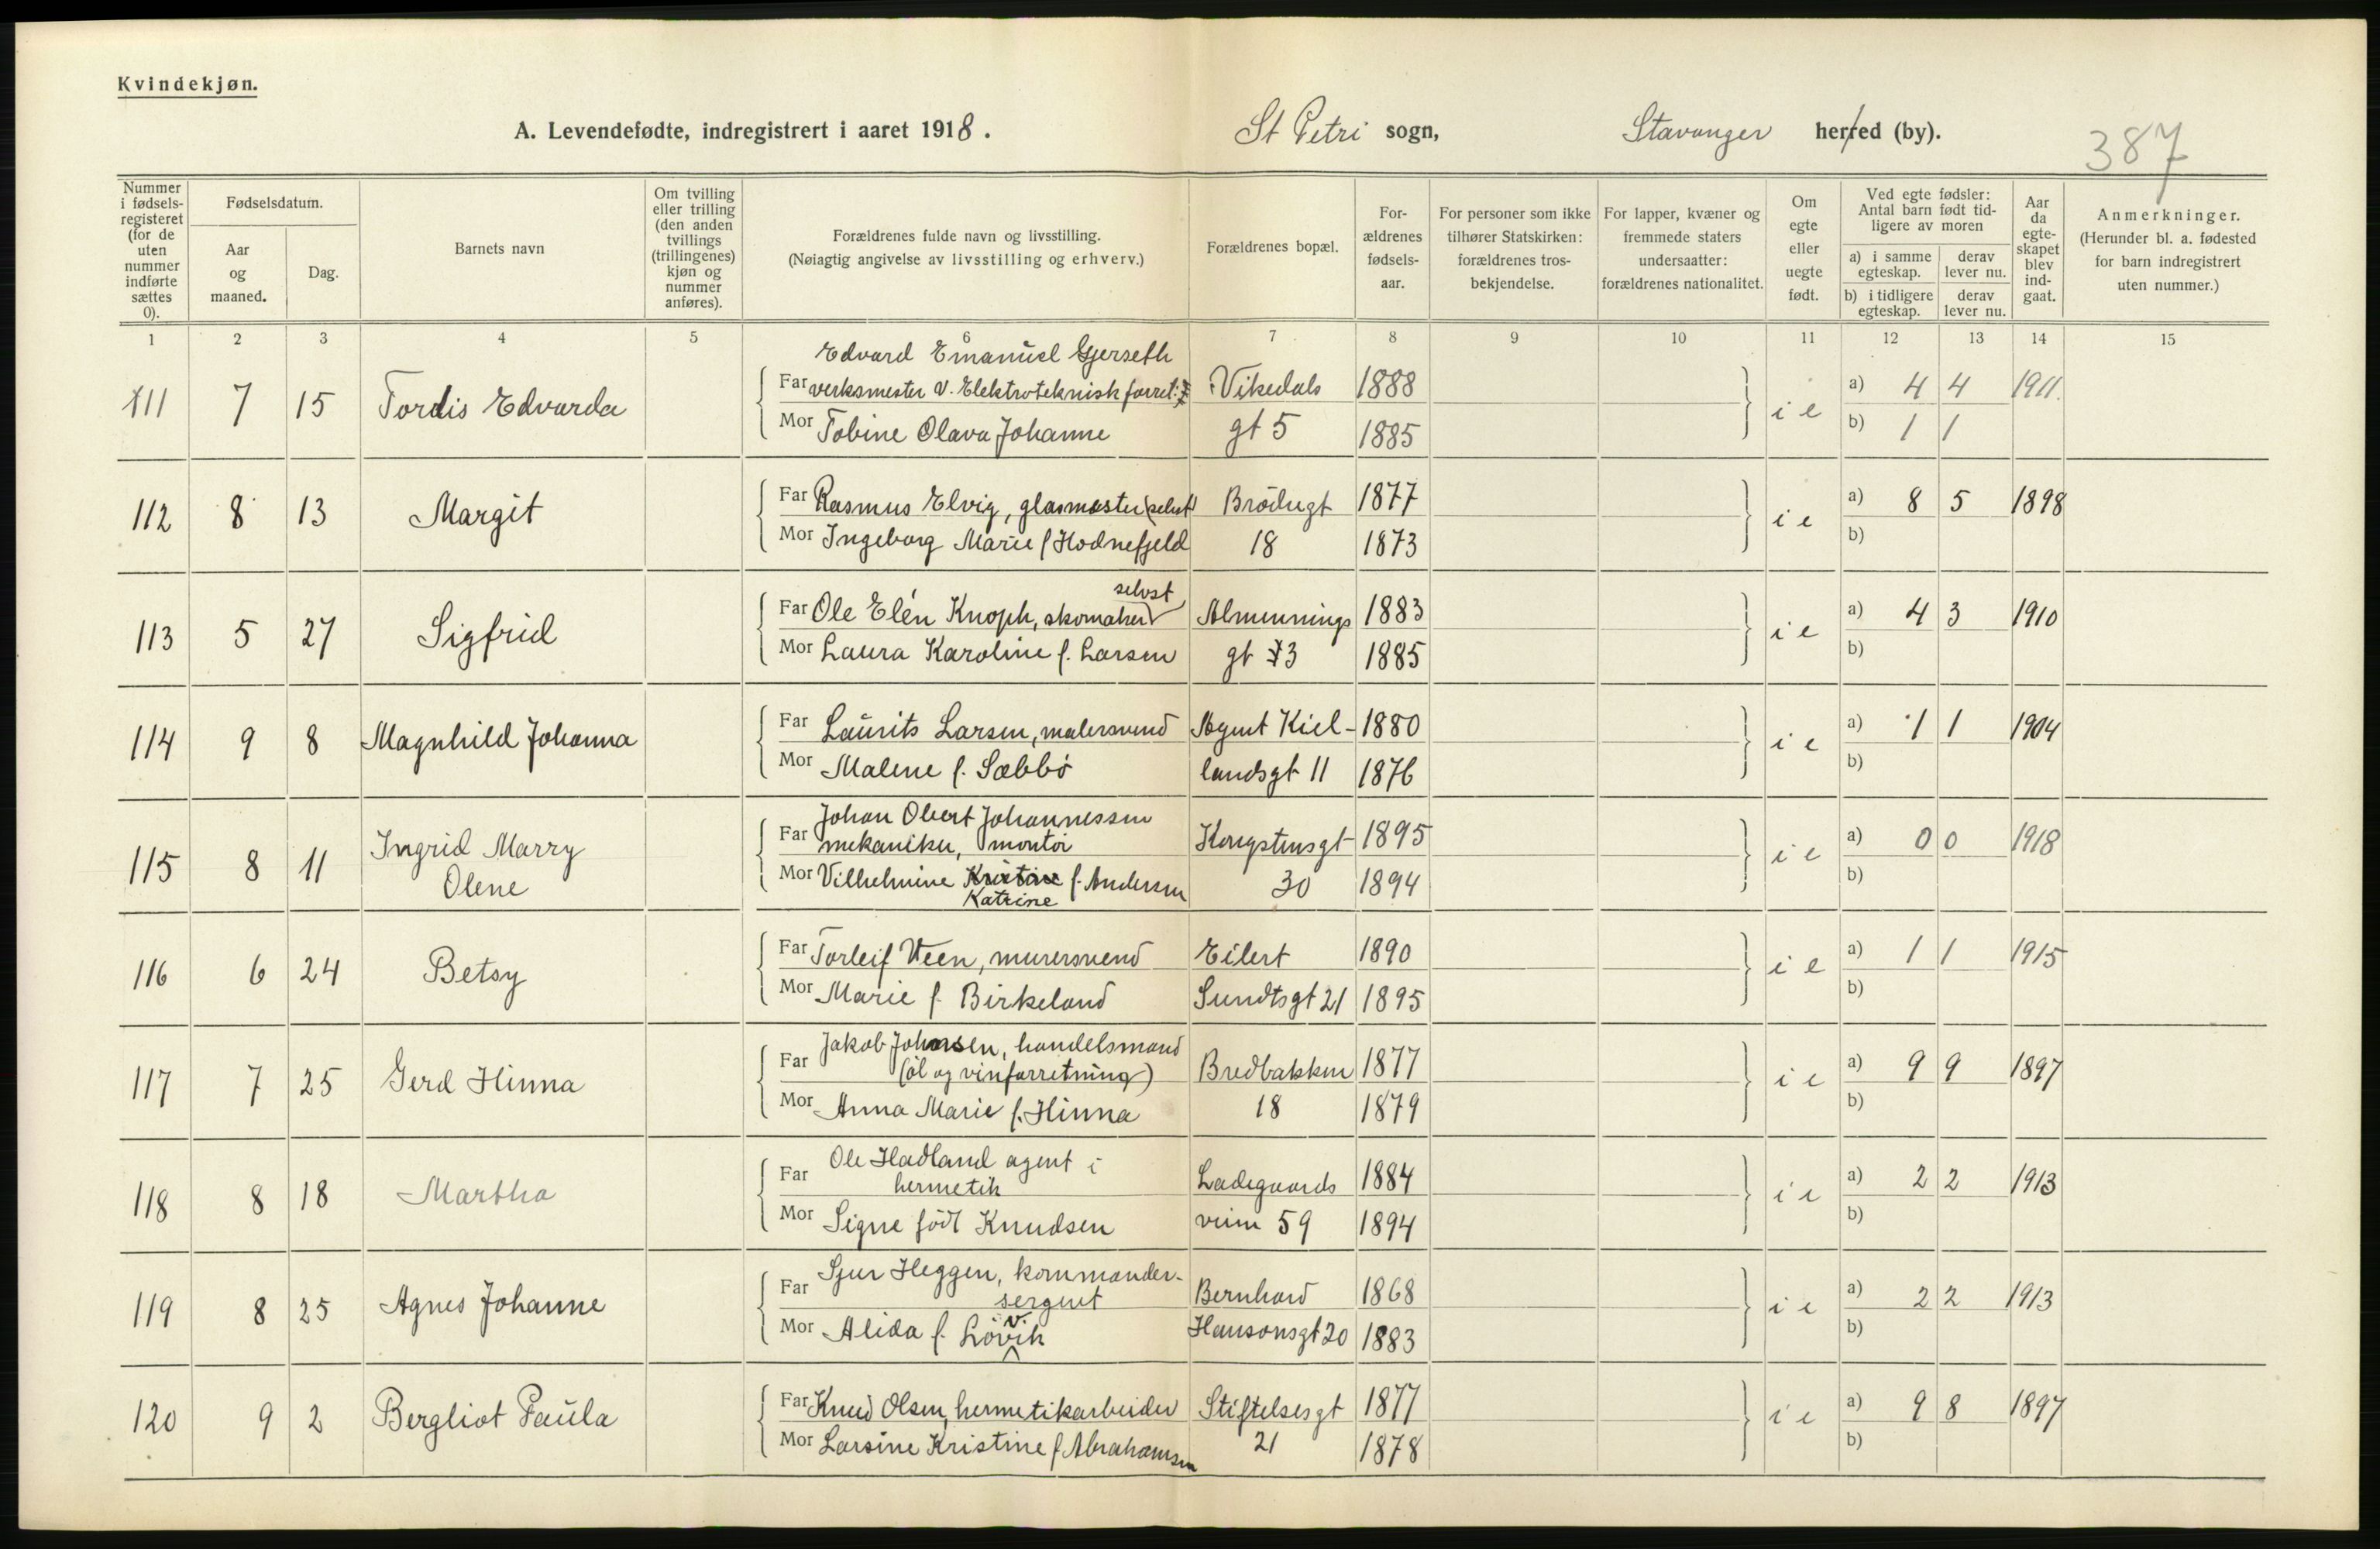 Kvindekjøn.
A. Levendefødte, indregistrert i aaret 1918. St Petri sogn, Stavanger herred (by).
387
Nummer i fødselsregisteret (for de uten nummer indførte sættes 0).
Fødselsdatum.
Aar og maaned.
Dag.
Barnets navn
Om tvilling eller trilling (den anden tvillings (trillingenes) kjøn og nummer anføres).
Forældrenes fulde navn og livsstilling.
(Nøiagtig angivelse av livsstilling og erhverv.)
Forældrenes bopæl.
Forældrenes fødselsaar.
For personer som ikke tilhører Statskirken: forældrenes trosbekjendelse.
For lapper, kvæner og fremmede staters undersaatter: forældrenes nationalitet.
Om egte eller uegte født.
Ved egte fødsler: Antal barn født tidligere av moren
a) i samme egteskap. derav lever nu.
b) i tidligere egteskap. derav lever nu.
Aar da egteskapet blev indgaat.
Anmerkninger.
(Herunder bl. a. fødested for barn indregistrert uten nummer.)
1 2 3 4 5 6 7 8 9 10 11 12 13 14 15
Edvard Emanuel Gjerseth
111 7 15 Tordis Edvarda Far verksmester v. Elektroteknisk forret. Vikedals 1888 i e a) 4 4 1911.
Mor Tobine Olava Johanne gt 5 1885 b) 1 1
112 8 13 Margit Far Rasmus Elvig, glasmester (selvst Brödregt 1877 i e a) 8 5 1898
Mor Ingeborg Marie f Hodnefjeld 18 1873 b)
selvst
113 5 27 Sigfrid Far Ole Elén Knoph, skomaker Almennings 1883 i e a) 4 3 1910
Mor Laura Karoline f. Larsen gt 73 1885 b)
114 9 8 Magnhild Johanna Far Laurits Larsen, malersvend Agent Kiel- 1880 i e a) 1 1 1904
Mor Malene f. Sæbbö landsgt 11 1876 b)
Johan Obert Johannessen
115 8 11 Ingrid Marry Far mekaniker, montör Kongstensgt 1895 i e a) 0 0 1918
Olene Mor Vilhelmine Kristine f. Andersen 30 1894 b)
Katrine
116 6 24 Betsy Far Torleif Veen, murersvend Eilert 1890 i e a) 1 1 1915
Mor Marie f. Birkeland Sundtsgt 21 1895 b)
Jakob Johnsen, handelsmand
117 7 25 Gerd Hinna Far (öl og vinforretning) Bredbakken 1877 i e a) 9 9 1897
Mor Anna Marie f. Hinna 18 1879 b)
Ole Hadland agent i
118 8 18 Martha Far hermetik Ladegaards 1884 i e a) 2 2 1913
Mor Signe födt Knudsen veien 59 1894 b)
Sjur Heggen, kommander-
119 8 25 Agnes Johanne Far sergent Bernhard 1868 i e a) 2 2 1913
Mor Alida f. Lövik Hansonsgt 20 1883 b)
v.
120 9 2 Bergliot Paula Far Knud Olsen, hermetikarbeider Stiftelsesgt 1877 i e a) 9 8 1897
Mor Larsine Kristine f Abrahamsen 21 1878 b)